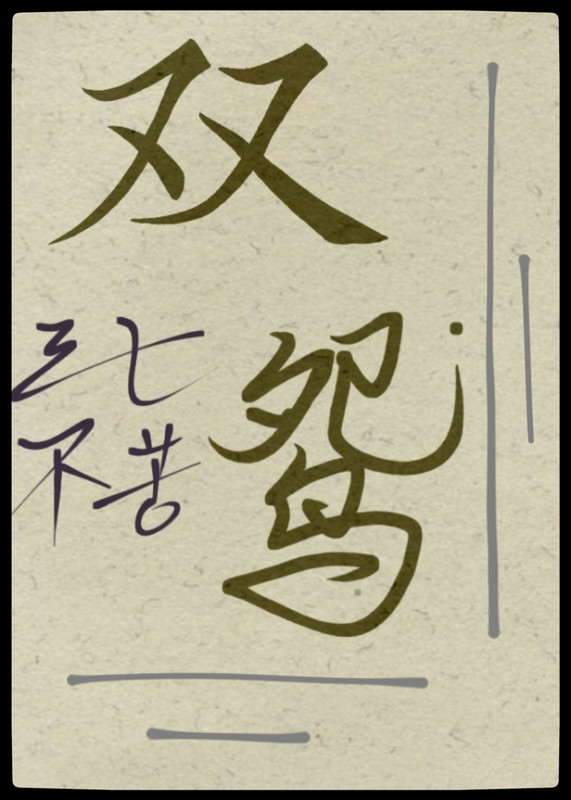 双
鸳
三七
不苦